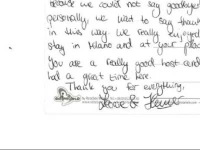 because we could not say goodbye
personally, we want to say thank
in this way. We really enjoyed
stay in Milano and at your place
You are a really good host and
had a great time here.
Thank you for everything,
&